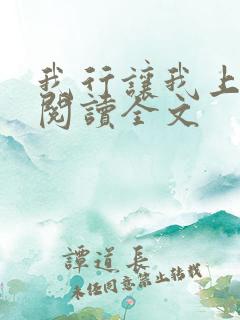 我行讓我上
閱讀全文
譚道長
未经同意禁止转载